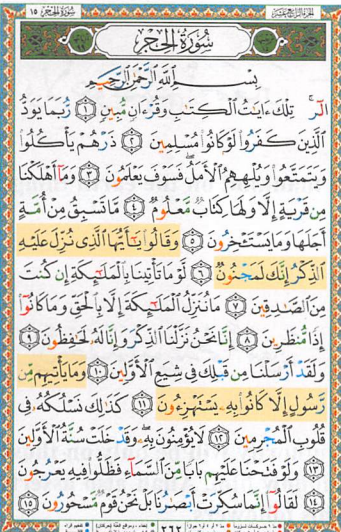 سُورَةُ الحِجْرِ ١٥
سُورَةُ الحِجْرِ
بِسْمِ ٱللَّهِ ٱلرَّحْمَٰنِ ٱلرَّحِيمِ
الٓر ۚ تِلْكَ ءَايَٰتُ ٱلْكِتَٰبِ وَقُرْءَانٍ مُّبِينٍ ١ رُّبَمَا يَوَدُّ
ٱلَّذِينَ كَفَرُوا۟ لَوْ كَانُوا۟ مُسْلِمِينَ ٢ ذَرْهُمْ يَأْكُلُوا۟
وَيَتَمَتَّعُوا۟ وَيُلْهِهِمُ ٱلْأَمَلُ ۖ فَسَوْفَ يَعْلَمُونَ ٣ وَمَآ أَهْلَكْنَا
مِن قَرْيَةٍ إِلَّا وَلَهَا كِتَابٌ مَّعْلُومٌ ٤ مَّا تَسْبِقُ مِنْ أُمَّةٍ
أَجَلَهَا وَمَا يَسْتَـْٔخِرُونَ ٥ وَقَالُوا۟ يَٰٓأَيُّهَا ٱلَّذِى نُزِّلَ عَلَيْهِ
ٱلذِّكْرُ إِنَّكَ لَمَجْنُونٌ ٦ لَّوْ مَا تَأْتِينَا بِٱلْمَلَٰٓئِكَةِ إِن كُنتَ
مِنَ ٱلصَّٰدِقِينَ ٧ مَا نُنَزِّلُ ٱلْمَلَٰٓئِكَةَ إِلَّا بِٱلْحَقِّ وَمَا كَانُوٓا۟
إِذًا مُّنظَرِينَ ٨ إِنَّا نَحْنُ نَزَّلْنَا ٱلذِّكْرَ وَإِنَّا لَهُۥ لَحَٰفِظُونَ ٩
وَلَقَدْ أَرْسَلْنَا مِن قَبْلِكَ فِى شِيَعِ ٱلْأَوَّلِينَ ١٠ وَمَا يَأْتِيهِم مِّن
رَّسُولٍ إِلَّا كَانُوا۟ بِهِۦ يَسْتَهْزِءُونَ ١١ كَذَٰلِكَ نَسْلُكُهُۥ فِى
قُلُوبِ ٱلْمُجْرِمِينَ ١٢ لَا يُؤْمِنُونَ بِهِۦ ۖ وَقَدْ خَلَتْ سُنَّةُ ٱلْأَوَّلِينَ
١٣ وَلَوْ فَتَحْنَا عَلَيْهِم بَابًا مِّنَ ٱلسَّمَآءِ فَظَلُّوا۟ فِيهِ يَعْرُجُونَ
١٤ لَقَالُوٓا۟ إِنَّمَا سُكِّرَتْ أَبْصَٰرُنَا بَلْ نَحْنُ قَوْمٌ مَّسْحُورُونَ ١٥
٢٦٢